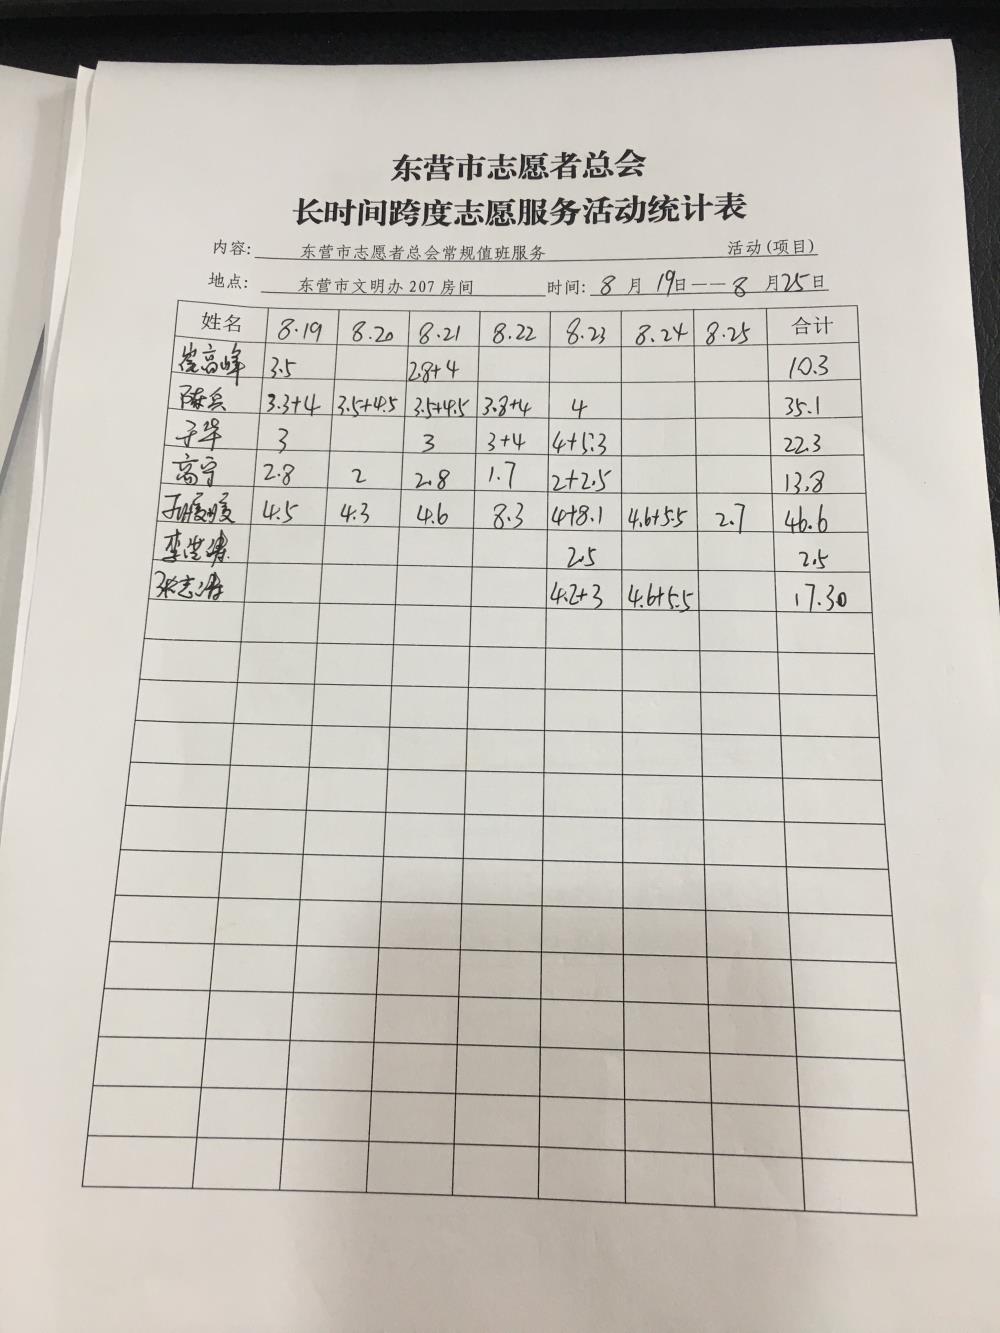 东营市志愿者总会
长时间跨度志愿服务活动统计表
内容: 东营市志愿者总会常规值班服务 活动(项目)
地点: 东营市文明办 207 房间 时间: 8 月 19日——8 月25日
姓名 8.19 8.20 8.21 8.22 8.23 8.24 8.25 合计
崔高峰 3.5 2.8+4 10.3
陈兵 3.3+4 3.5+4.5 3.5+4.5 3.8+4 4 35.1
于华 3 3 3+4 4+5.3 22.3
高宁 2.8 2 2.8 1.7 2+2.5 13.8
4.5 4.3 4.6 8.3 4+8.1 4.6+5.5 2.7 46.6
李 2.5 2.5
张志海 4.2+3 4.6+5.5 17.30